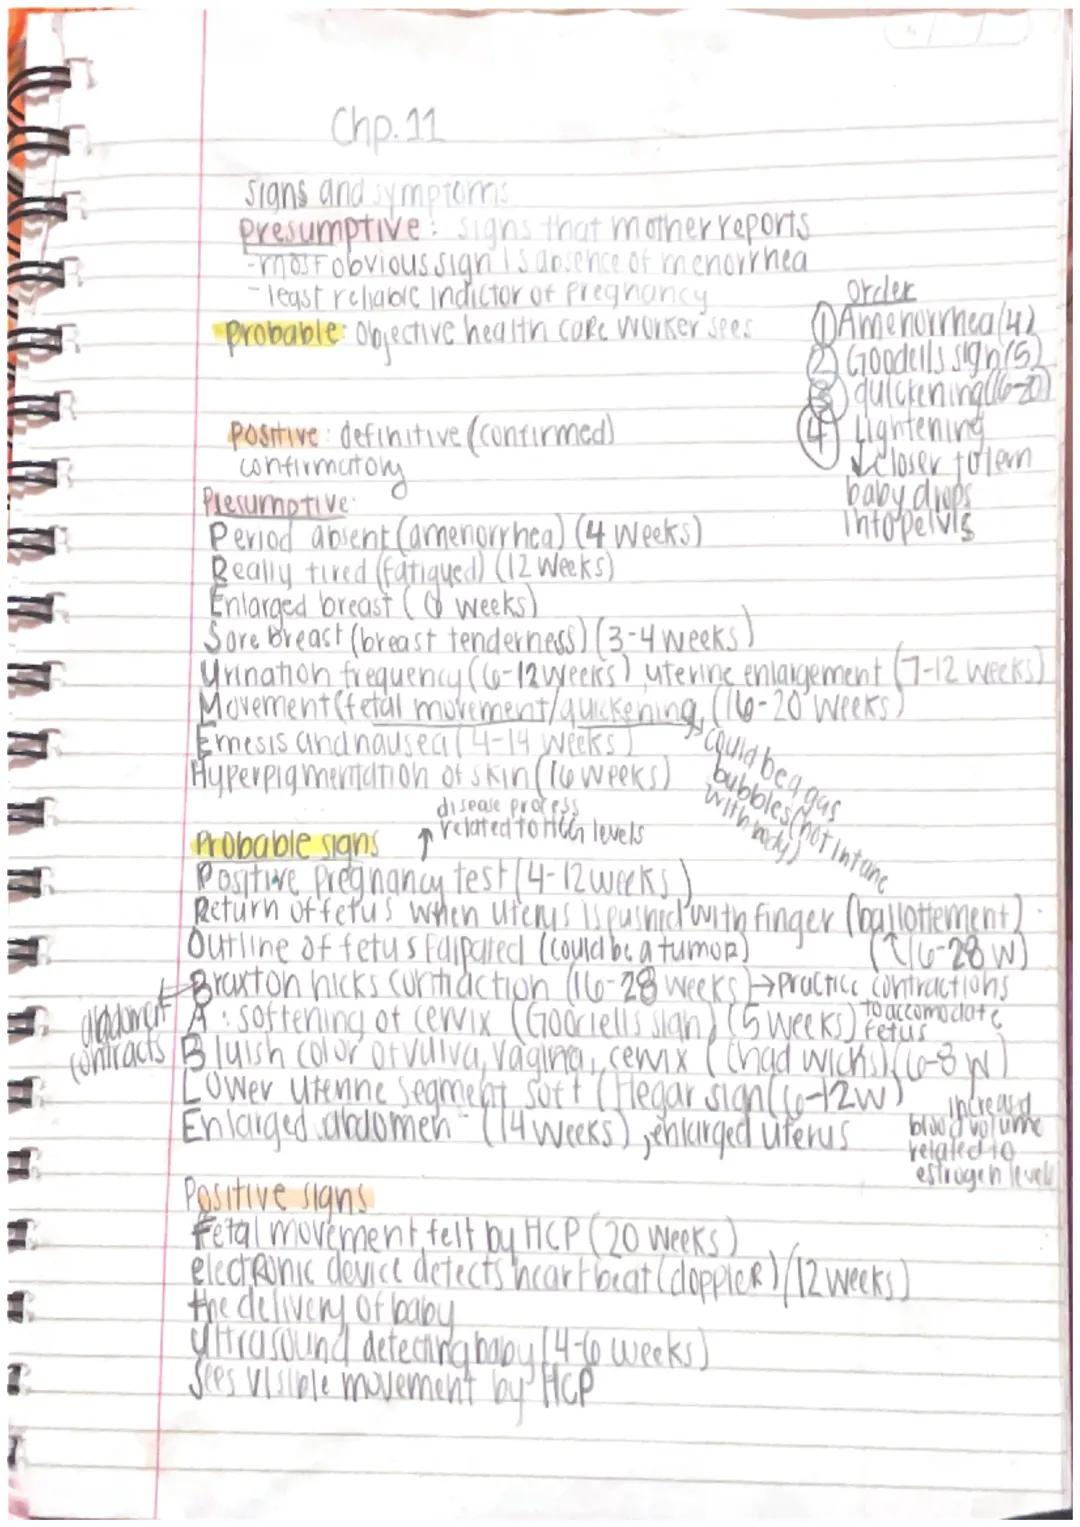 Chp. 11
signs and symptoms
Presumptive: signs that mother reports
-most obvious sign is absence of menorrhea
-least reliable indictor of Pregnancy
probable: Objective health care worker sees
order
① Amenorrhea (4)
② Goodells sign (5)
③ quickening (16-20)
④ Lightening
↓ closer to term
baby drops
into pelvis
Positive: definitive (confirmed)
confirmatory
Presumptive:
Period absent (amenorrhea) (4 weeks)
Really tired (fatigued) (12 weeks)
Enlarged breast (6 weeks)
Sore Breast (breast tenderness) (3-4 weeks)
Urination frequency (6-12 weeks) uterine enlargement (7-12 weeks)
Movement (fetal movement/quickening, (16-20 weeks)
Emesis and nausea (4-14 weeks)
Hyperpigmentation of skin (16 weeks)
could be a gas
bubbles (not in tune
with body)
disease process
↑ related to HCG levels
Probable signs
Positive pregnancy test (4-12 weeks)
Return of fetus when uterus is pushed with finger (ballottement)
(16-28 W)
Outline of fetus palpated (could be a tumor)
Braxton hicks contraction (16-28 weeks) → Practice contractions
abdomen
contracts
A: softening of cervix (Goodells sign) (5 weeks) to accomodate
fetus
Bluish color of vulva, vagina, cervix (Chadwicks) (6-8 W)
Lower uterine segment soft (Hegar sign (6-12 W)
Enlarged abdomen - (14 weeks), enlarged uterus
increased
blood volume
related to
estrogen level
Positive signs
Fetal movement felt by HCP (20 weeks)
electronic device detects heartbeat (doppler) (12 weeks)
the delivery of baby
Ultrasound detecting baby (4-6 weeks)
Sees visible movement by HCP